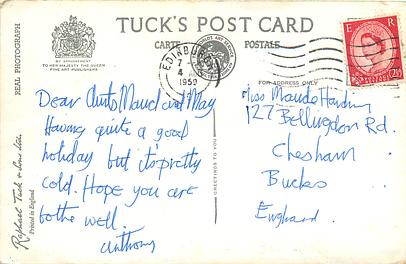 TUCK'S POST CARD
CARTE POSTALE
BY APPOINTMENT
TO HER MAJESTY THE QUEEN
FINE ART PUBLISHERS
REAL PHOTOGRAPH
Raphael Tuck & Sons Ltd.
Printed in England
GREETINGS TO YOU
EDINBURGH
7
4
1959
E R
2½
FOR ADDRESS ONLY
Dear Aunts Maud and May
Having quite a good
holiday but it's pretty
cold. Hope you are
bothe well.
Anthony
Miss Maude Harding
127 Bellingdon Rd.
Chesham
Bucks
England.